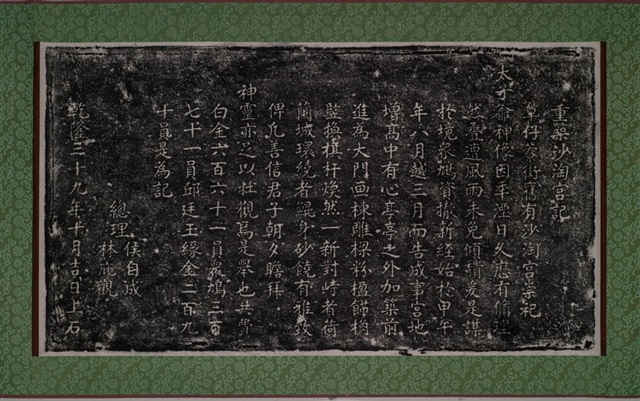 重築沙淘宮記
草仔寮街舊有沙淘宮崇祀
太子爺神像因年湮日久應有脩理
然疊遭風雨未免傾頹爰是謀
於境眾鳩資撤新經始於甲午
年八月越三月而告成事宮地
增高中有心亭亭之外加築前
進為大門画棟雕梁粉楹節梲
監換撰杆煥然一新對峙者荷
蘭城環繞者鯤身砂饒有雅致
俾凡善信君子朝夕瞻拜
神靈亦足以壯觀焉是舉也共費
白金六百六十一員眾鳩三百
七十一員邱廷玉緣金二百九
十員是為記
總理 侯自成 林 觀
乾隆三十九年十月吉日上石